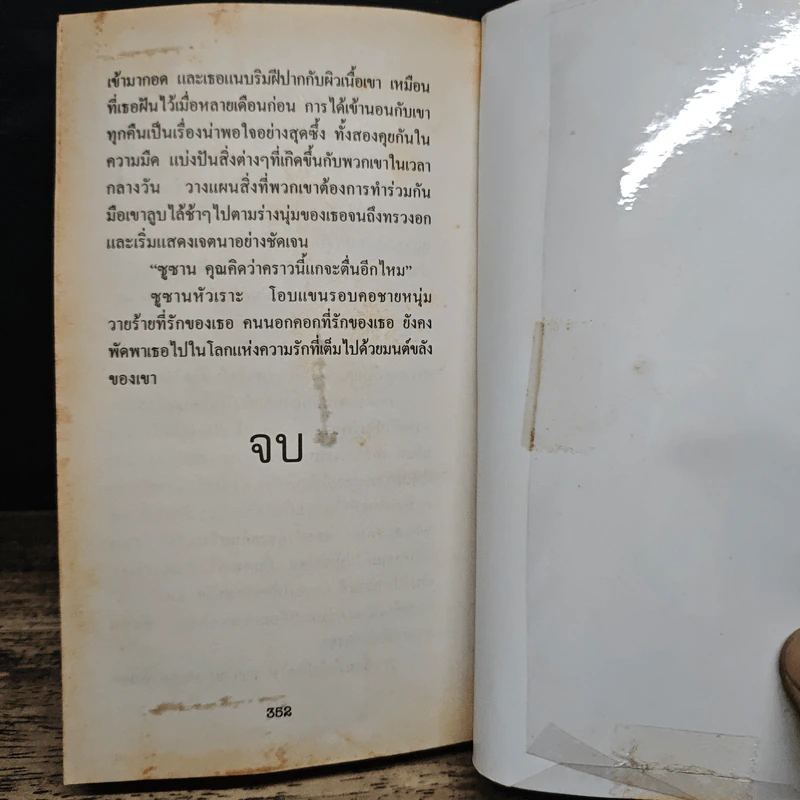 เข้ามากอด และเธอแนบริมฝีปากกับผิวเนื้อเขา เหมือน
ที่เธอฝันไว้เมื่อหลายเดือนก่อน การได้เข้านอนกับเขา
ทุกคืนเป็นเรื่องน่าพอใจอย่างสุดซึ้ง ทั้งสองคุยกันใน
ความมืด แบ่งปันสิ่งต่างๆที่เกิดขึ้นกับพวกเขาในเวลา
กลางวัน วางแผนสิ่งที่พวกเขาต้องการทำร่วมกัน
มือเขาลูบไล้ช้าๆไปตามร่างนุ่มของเธอจนถึงทรวงอก
และเริ่มแสดงเจตนาอย่างชัดเจน
“ซูซาน คุณคิดว่าคราวนี้แกจะตื่นอีกไหม”
ซูซานหัวเราะ โอบแขนรอบคอชายหนุ่ม
วายร้ายที่รักของเธอ คนนอกคอกที่รักของเธอ ยังคง
พัดพาเธอไปในโลกแห่งความรักที่เต็มไปด้วยมนต์ขลัง
ของเขา
จบ
352